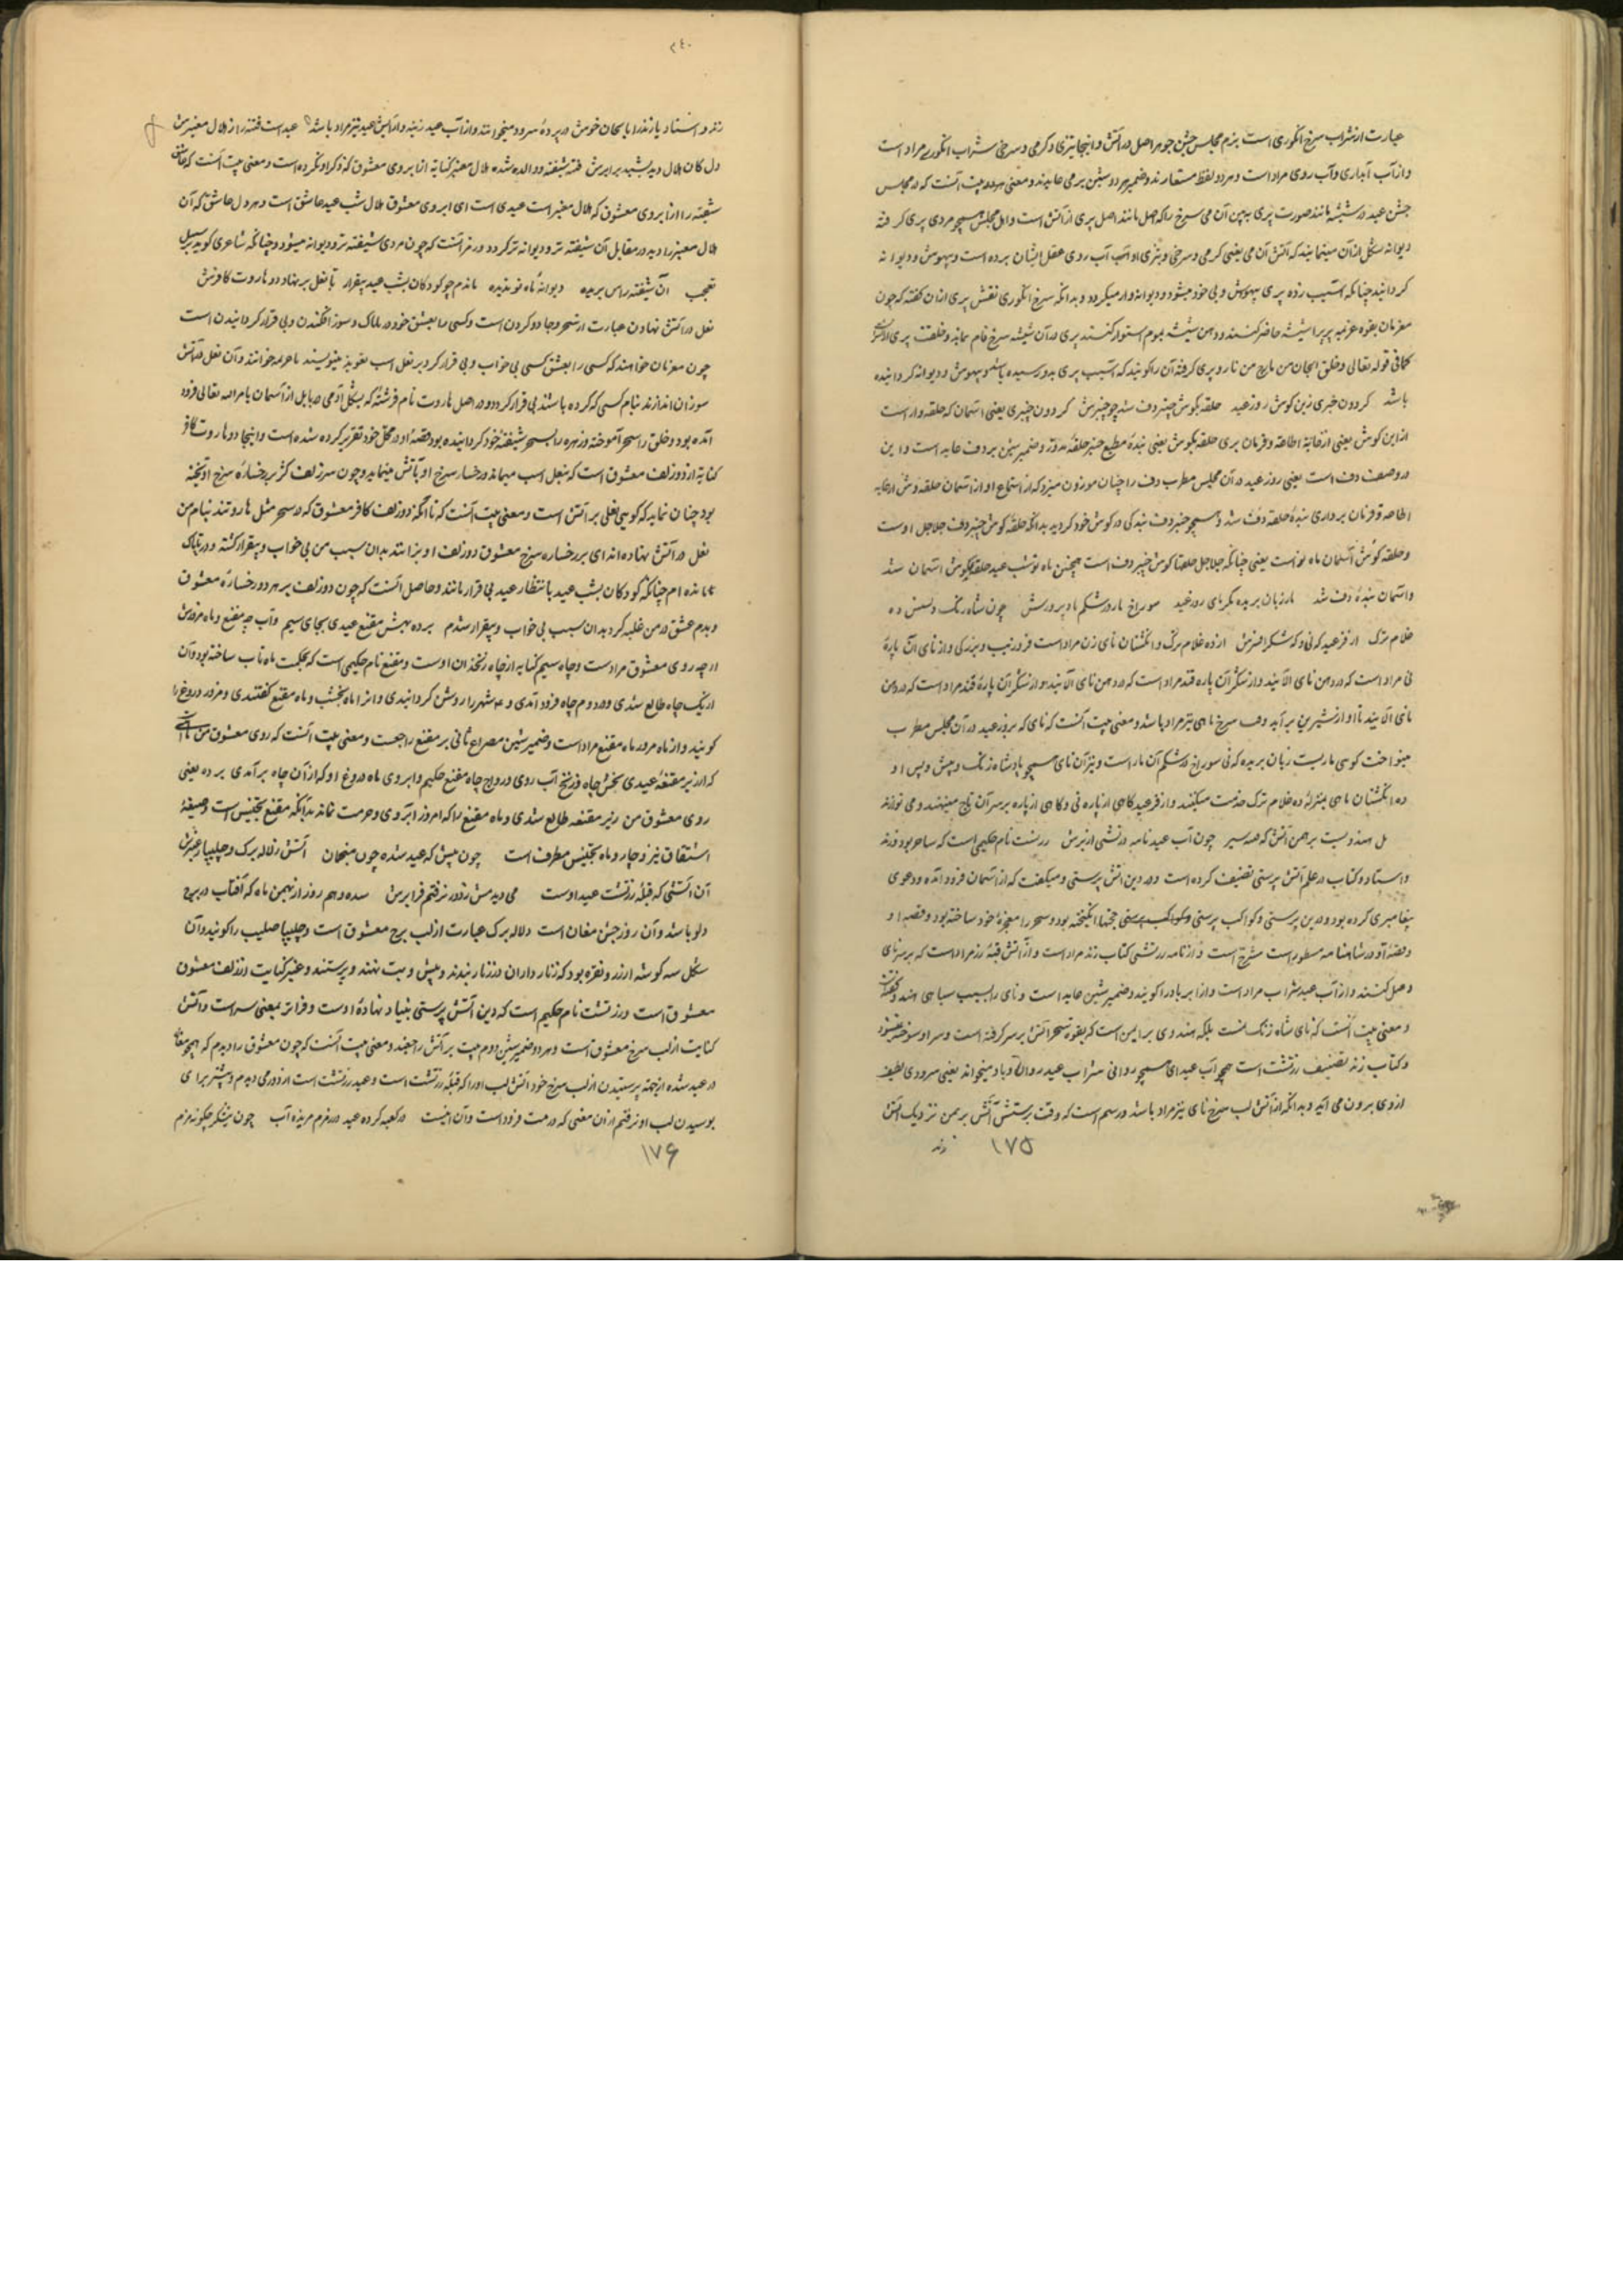 عبارت از شراب سرخ انگوری است بزم مجلس جشن جوهر اصل در آتش و اینجا تیزی و کرمی و سرخی شراب انگوری مراد است
و از آب آبداری و آب روی مراد است و هر دو لفظ مستعارند و ضمیر هر دو شین بر می عایدند و معنی بیت آنست که در مجلس
جشن عید در شیشه مانند صورت پری ببین آن می سرخ را که اصل مانند اصل پری از آتش است و اهل مجلس همچو مردی پری کرفته
دیوانه شکل از آن مینمایند که آتش آن می یعنی کرمی و سرخی و تیزی او آب آب روی عقل ایشان برده است و بیهوش و دیوانه
کردانید چنانکه آسیب زده پری بیهوش و بی خود میشود و دیوانه وار میکردد و بدانکه سرخ انگوری نقش پری از آن کفته که چون
معزمان بقوه عزیمه پریرا بشیشه حاضر کنند و دهن شیشه بموم استوار کنند پری در آن شیشه سرخ فام نماید و خلقت پری از آتش
کما فی قوله تعالی و خلق الجان من مارج من نار و پری کرفته آن را کویند که آسیب پری بدو رسیده باشد و بیهوش و دیوانه کردانیده
باشد کردون خبری زین کوش روز عید حلقه بکوش چنبر دف شد چو چنبرش کردون چنبری یعنی آسمان که حلقه وار است
از این کوش یعنی از غایة اطاعه و فرمان بری حلقه بکوش یعنی بندهٔ مطیع چنبر حلقهٔ مدور و ضمیر شین بر دف عاید است و این
در وصف دف است یعنی روز عید در آن مجلس مطرب دف را چنان موزون میزد که از استماع او از آسمان حلقه وش از غایه
اطاعه و فرمان برداری بندهٔ حلقه دف شد و همچو چنبر دف بندکی در کوش خود کردید بدانکه حلقهٔ کوش چنبر دف جلاجل اوست
و حلقه کوش آسمان ماه نو است یعنی چنانکه جلاجل حلقهٔ کوش چنبر دف است همچنین ماه نو شب عید حلقه بکوش آسمان شد
و آسمان بندهٔ دف شد مار زبان بریده نکر نای روز عید سوراخ مار در شکم باد پرورش چون شاه زنک و پسش ده
غلام ترک از ده غلام ترک ده انکشتان نای زن مراد است
نی مراد است که در دهن نای آلایند و از شکر آن پاره قند مراد است که در دهن نای آلایند و از شکر آن پارهٔ قند مراد است که در دهن
نای آلایند تا آواز شیرین بر آید و سرخ نای نیز مراد باشد و معنی بیت آنست که نای که بروز عید در آن مجلس مطرب
مینواخت کوئی ماریست زبان بریده که نی سوراخ در شکم آن مار است و نیز آن نای همچو پادشاه زنک و پیش و پس او
ده انکشتان نایی بمنزلهٔ ده غلام ترک خدمت میکنند و از کاهی از پاره نی و کاهی از پاره بر سر آن تاج مینهند و می نوازند
بل هندویست برهمن آتش که همه سر چون آب عید نامه زردشتی از برش زردشت نام حکیمی است که ساحر بود و زند
و استا دو کتاب در علم آتش پرستی تصنیف کرده است و در دین آتش پرستی و میکفت که از آسمان فرود آمده و دعوی
پیغامبری کرده بود و در دین پرستی و کواکب پرستی حجتها انکیخته بود و سحر را معجزهٔ خود ساخته بود و قصه او
در شاهنامه مسطور است مشرح است و از نامه زردشتی کتاب زند مراد است و از آتش قبهٔ زر مراد است که بر سر نای
وصل کنند و از آب عید شراب مراد است و از ابر باد را کویند و ضمیر شین عاید است و نای را بسبب سیاهی هندو کفته
و معنی بیت آنست که نای شاه زنک نیست بلکه هندوی برهمن است که بقوه سحر آتش بر سر کرفته است و سر او سوخته نمیشود
و کتاب زند تصنیف زردشت است همچو آب عید ای همچو روانی شراب عید روان و با باد میخواند یعنی سرودی لطیف
از وی برون می آید و بدانکه از آتش لب سرخ نای نیز مراد باشد و رسم است که وقت پرستش آتش برهمن نزدیک آتش
زند
۱۷۵
۲۴۰
زند و استا و پازند را بالحان خوش در پردهٔ سرود میخوانند و از آب عید زینه و آرایش عید نیز مراد باشد عید است فتنه را ز هلال معنبرش
دل کان هلال دید بشیبد برابرش فتنه شیفته و واله شده هلال معنبر کنایه از ابروی معشوق که ذکر او نکرده است و معنی بیت آنست که عاشق
شیفته را از ابروی معشوق که هلال معنبر است عیدی است ای ابروی معشوق هلال شب عید عاشق است و هر دل عاشق که آن
هلال معنبر را دید در مقابل آن شیفته تر و دیوانه تر کردد و رمز آنست که چون مردی شیفته تر و دیوانه میشود چنانکه شاعری کوید بر سبیل
تعجب آن شیفته را بس بریده دیوانهٔ ماه نو ندیده ماندم چو کودکان بشب عید بیقرار تا نعل بر نهاد دو هاروت کافرش
نعل در آتش نهادن عبارت از سحر و جادو کردن است و کسی را بعشق خود در هلاک و سوز افکندن و بی قرار کردانیدن است
چون معزمان خواهند که کسی را بعشق کسی بی خواب و بی قرار کرد بر نعل اسب تعویذ مینویسند یا عزیمه خوانند و آن نعل در آتش
سوزان اندازند بنام کسی که کرده باشند بی قرار کردد و در اصل هاروت نام فرشته که بشکل آدمی در بابل از آسمان بامر الله تعالی فرود
آمده بود و خلق را سحر آموخته و زهره را بسحر شیفتهٔ خود کردانیده بود قصهٔ او در محل خود تقریر کرده شده است و اینجا دو هاروت کافر
کنایة از دو زلف معشوق است که بنعل اسب میماند و رخسار سرخ او بآتش مینماید و چون سر زلف کژ بر رخسارهٔ سرخ او آویخته
بود چنان نماید که کویی نعلی بر آتش است و معنی بیت آنست که تا آنکه دو زلف کافر معشوق که در سحر مثل هاروتند بنام من
نعل در آتش نهاده اند ای بر رخساره سرخ معشوق دو زلف او نهادند بدان سبب من بی خواب و بیقرار کشته و در هلاک
مانده ام چنانکه کودکان بشب عید بانتظار عید بی قرار مانند و حاصل آنست که چون دو زلف بر هر دو رخسارهٔ معشوق
دیدم عشق در من غلبه کرد بدان سبب بی خواب و بیقرار شدم برده بهش مقنع عیدی بجای سیم و آب چه مقنع و ماه مزورش
از چه روی معشوق مراد ست و چاه سیم کنایه از چاه زنخدان اوست و مقنع نام حکیمی است که بحکمت ماه ناب ساخته بود و آن
از یک چاه طالع شدی و در دوم چاه فرود آمدی و ۴ شهر را روشن کردانیدی و آنرا ماه نخشب و ماه مقنع کفتندی و مزور دروغ را
کویند و از ماه مزور ماه مقنع مراد است و ضمیر شین مصراع ثانی بر مقنع راجعست و معنی بیت آنست که روی معشوق من
که از زیر مقنعهٔ عیدی آب روی و رواج چاه مقنع حکیم و ابروی ماه دروغ او که از آن چاه برآمدی برده یعنی
روی معشوق من زیر مقنعه طالع شدی و ماه مقنع را که امروز آبروی و حرمت نماند بدانکه مقنع تجنیس است و صیغهٔ
اشتقاق نیز و چاه و ماه تجنیس مطرف است چون بیش که عید سده چون مغان آتش ز لاله برک و چلیپا ز عنبرش
آن آتشی که قبلهٔ زردشت عید اوست می دیدمش ز دور نرفتم فرا برش سده دهم روز از بهمن ماه که آفتاب در برج
دلو باشد و آن روز جشن مغان است و لاله برک عبارت از لب سرخ معشوق است و چلیپا صلیب را کویند و آن
شکل سه کوشه از زر و نقره بود که زنار داران در زنار بندند و پیش بت نهند و پرستند و عنبر کنایت از زلف معشوق
معشوق است و زردشت نام حکیم است که دین آتش پرستی بنیاد نهادهٔ اوست و فراتر بمعنی سر است و آتش
کنایت از لب سرخ معشوق است و هر دو ضمیر شین دوم بیت بر آتش راجعند و معنی بیت آنست که چون معشوق را دیدم که همچو مغان
در عید سده از جهة پرستیدن از لب سرخ خود آتش لب او را که قبلهٔ زردشت است و عید زردشت است از دور می دیدم و پیشتر برای
بوسیدن لب او نرفتم از آن معنی که در مت فرود است و آن اینست در کعبه کرده عید و ز زمزم مزیده آب چون نیشکر چکونه مزم
۱۷۶